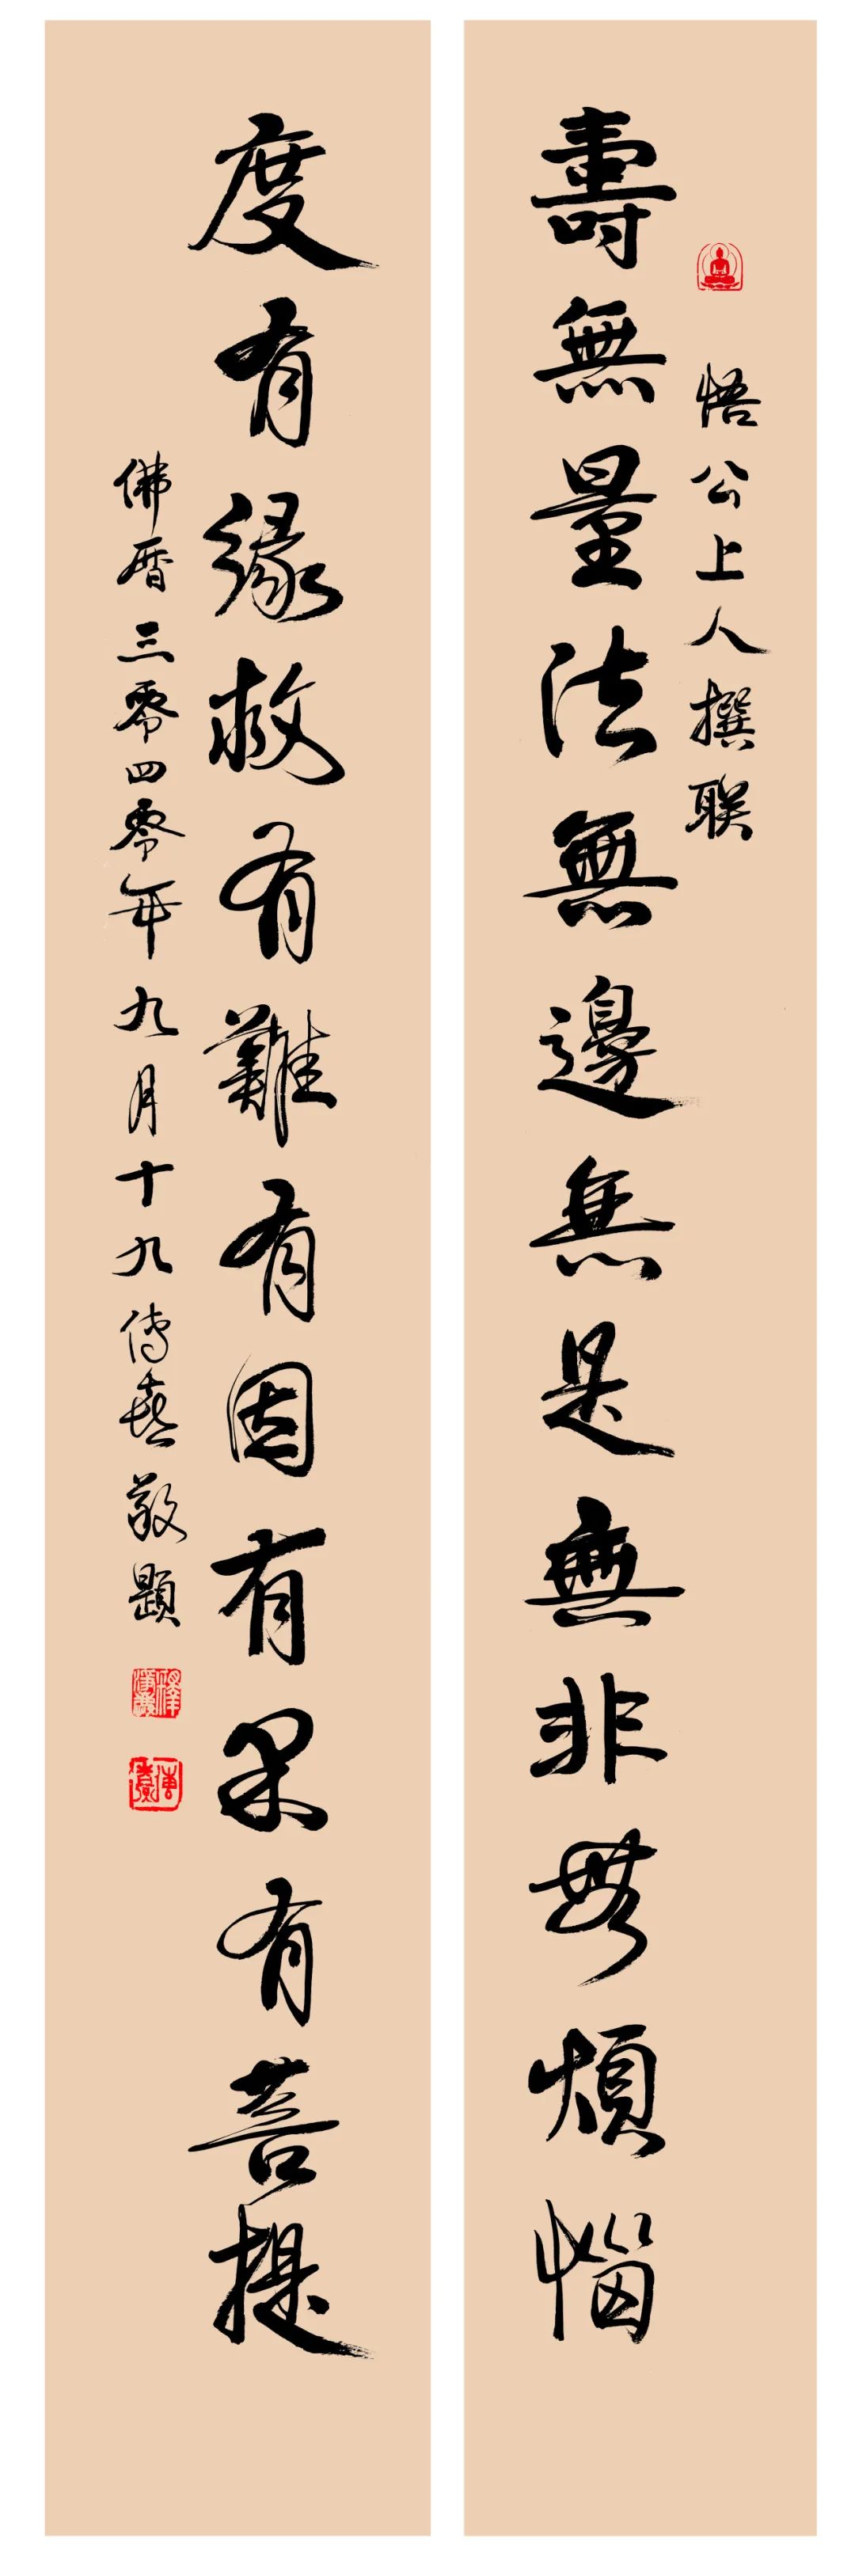 悟公上人撰联
壽無量法無邊無是無非無煩惱
度有緣救有難有因有果有菩提
佛曆三零四零年九月十九傳喜敬題